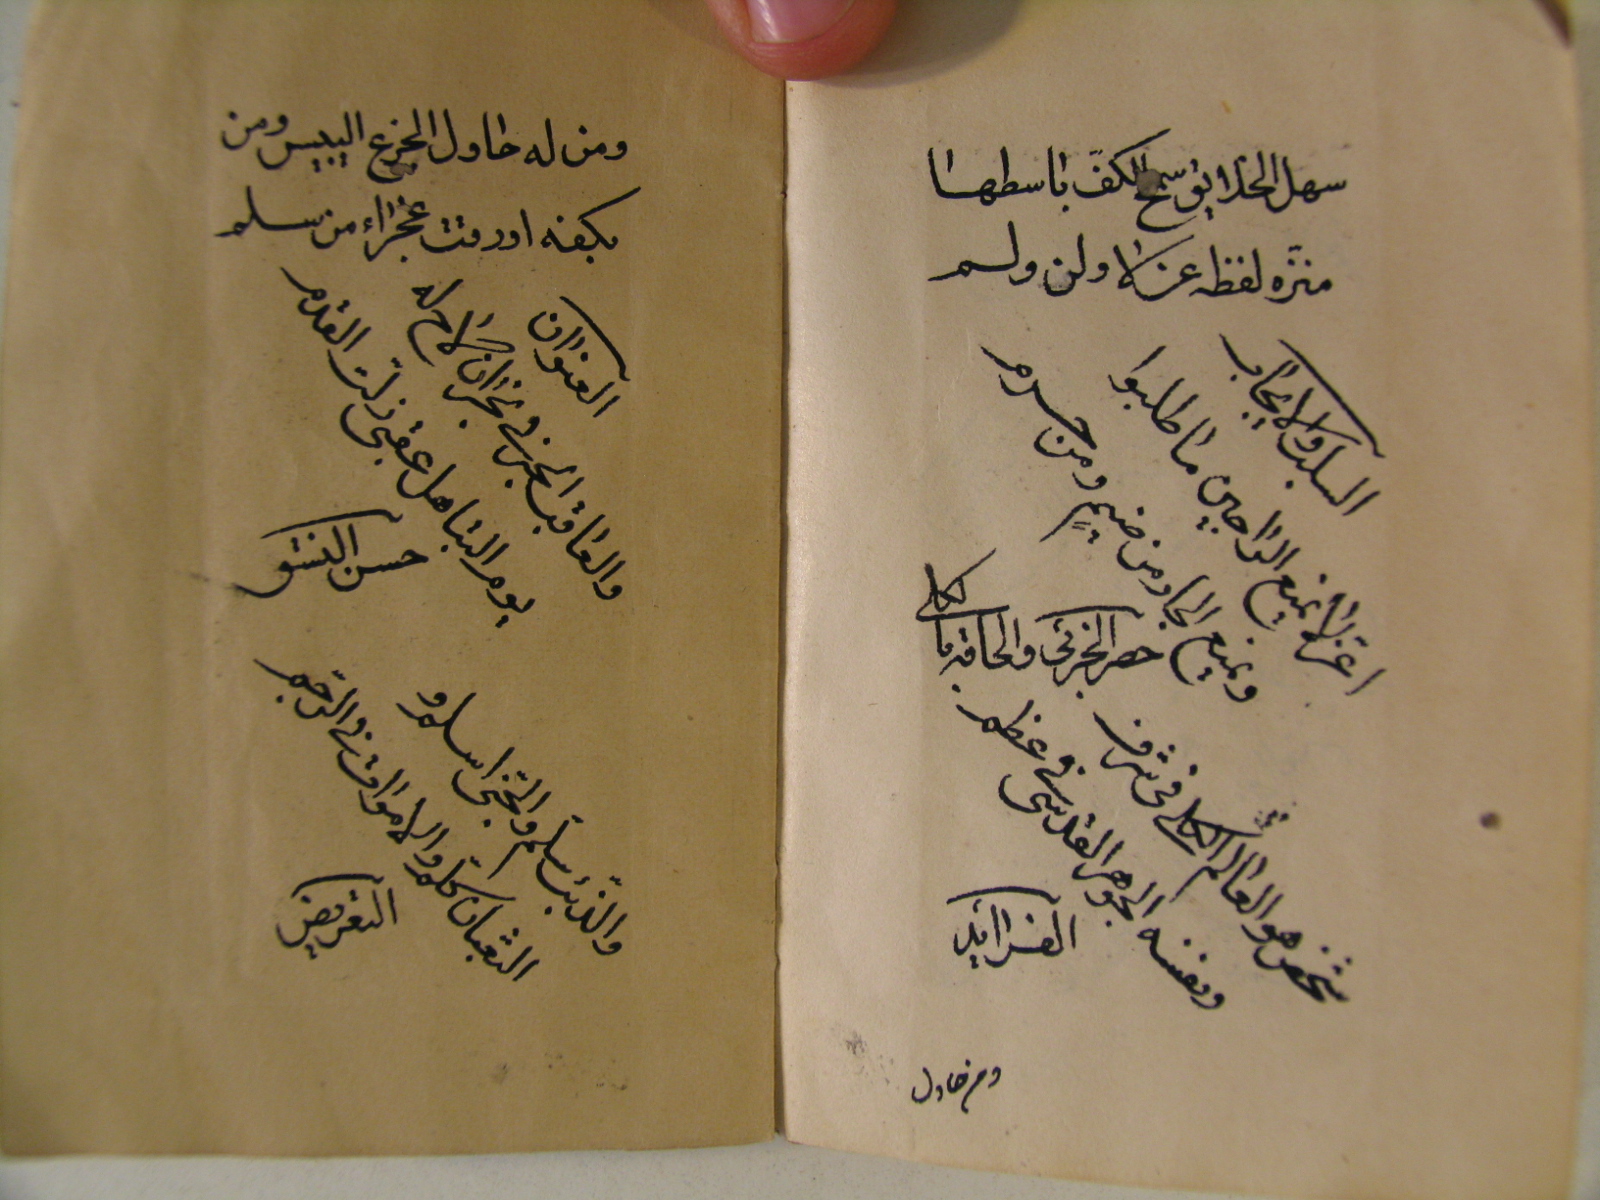 سهل الخلايق سمح الكفّ باسطها
منزّه لفظه عن لا ولن ولم
السلب والايجاب
اغرّ لا يمنع الراجين ما طلبوا
ويمنع الجار من ضيمٍ ومن حرم
حصر الجزئي والحاقه بالكلي
شخص هو العالم الكلي في شرف
ونفسه الجوهر القدسي في عظم
الفرايد
ومن حاول
ومن له حاول الجزع اليبيس ومن
بكفه اورقت عجراء من سلم
العنوان
والعاقب الحبر في نجران لاح له
يوم التباهل عقبى زلت القدم
حسن النسق
والذئب سلم والجنى اسلم و
الثعبان كلم والاموات في الرجم
التعريض